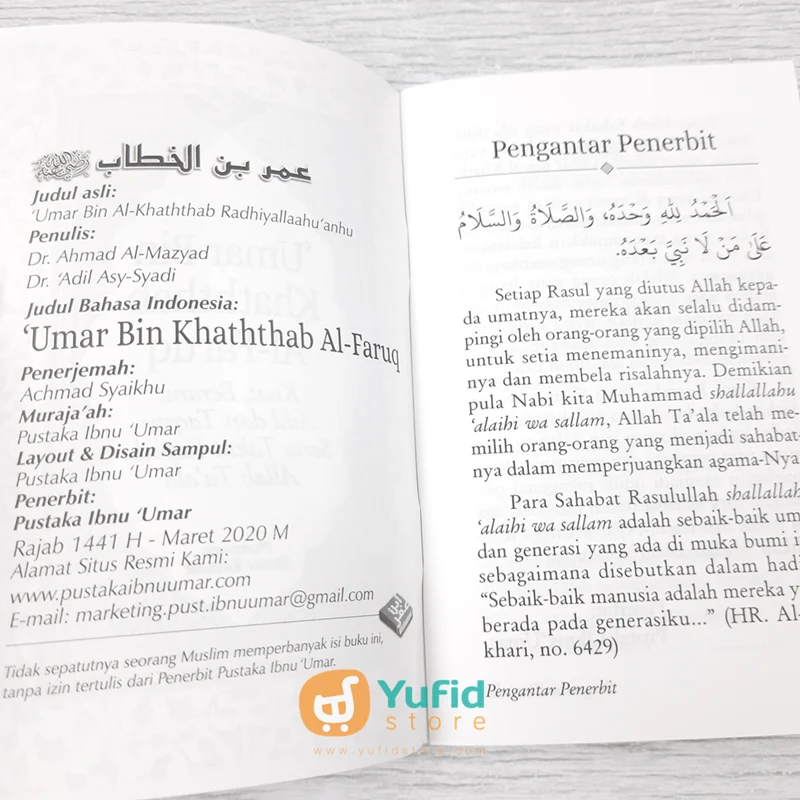 عمر بن الخطاب
Judul asli:
'Umar Bin Al-Khaththab Radhiyallaahu'anhu
Penulis:
Dr. Ahmad Al-Mazyad
Dr. 'Adil Asy-Syadi
Judul Bahasa Indonesia:
'Umar Bin Khaththab Al-Faruq
Penerjemah:
Achmad Syaikhu
Muraja'ah:
Pustaka Ibnu 'Umar
Layout & Disain Sampul:
Pustaka Ibnu 'Umar
Penerbit:
Pustaka Ibnu 'Umar
Rajab 1441 H - Maret 2020 M
Alamat Situs Resmi Kami:
www.pustakaibnuumar.com
E-mail: marketing.pust.ibnuumar@gmail.com
Tidak sepatutnya seorang Muslim memperbanyak isi buku ini,
tanpa izin tertulis dari Penerbit Pustaka Ibnu 'Umar.
Pengantar Penerbit
اَلْحَمْدُ لِلّٰهِ وَحْدَهُ، وَالصَّلَاةُ وَالسَّلَامُ
عَلَى مَنْ لَا نَبِيَّ بَعْدَهُ.
Setiap Rasul yang diutus Allah kepa-
da umatnya, mereka akan selalu didam-
pingi oleh orang-orang yang dipilih Allah,
untuk setia menemaninya, mengimani-
nya dan membela risalahnya. Demikian
pula Nabi kita Muhammad shallallahu
'alaihi wa sallam, Allah Ta'ala telah me-
milih orang-orang yang menjadi sahabat-
nya dalam memperjuangkan agama-Nya
Para Sahabat Rasulullah shallallah
'alaihi wa sallam adalah sebaik-baik um
dan generasi yang ada di muka bumi i
sebagaimana disebutkan dalam hadi
"Sebaik-baik manusia adalah mereka y
berada pada generasiku..." (HR. Al-
khari, no. 6429)
Pengantar Penerbit
Yufid
store
www.yufidstore.com